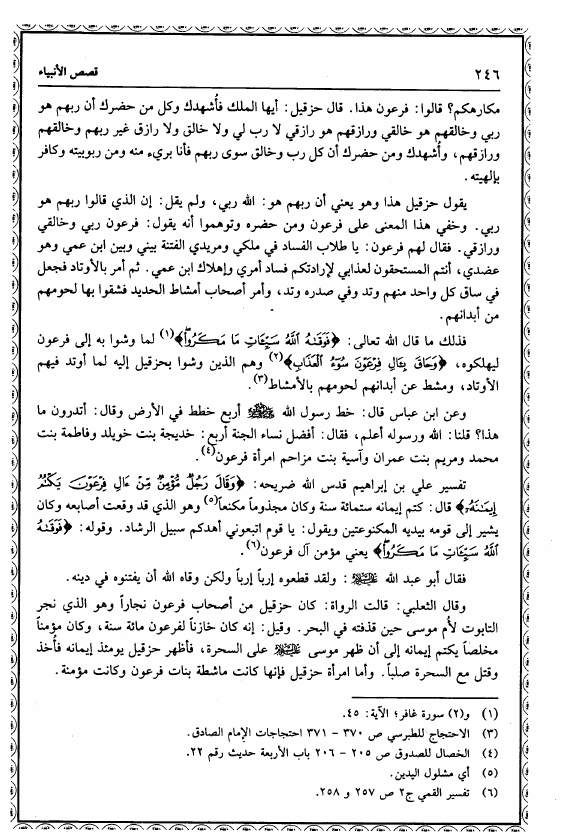 ٢٤٦ قصص الأنبياء
مكارهكم؟ قالوا: فرعون هذا. قال حزقيل: أيها الملك فأُشهدك وكل من حضرك أن ربهم هو
ربي وخالقهم هو خالقي ورازقهم هو رازقي لا رب لي ولا خالق ولا رازق غير ربهم وخالقهم
ورازقهم، وأُشهدك ومن حضرك أن كل رب وخالق سوى ربهم فأنا بريء منه ومن ربوبيته وكافر
بإلهيته.
يقول حزقيل هذا وهو يعني أن ربهم هو: الله ربي، ولم يقل: إن الذي قالوا ربهم هو
ربي. وخفي هذا المعنى على فرعون ومن حضره وتوهموا أنه يقول: فرعون ربي وخالقي
ورازقي. فقال لهم فرعون: يا طلاب الفساد في ملكي ومريدي الفتنة بيني وبين ابن عمي وهو
عضدي، أنتم المستحقون لعذابي لإرادتكم فساد أمري وإهلاك ابن عمي. ثم أمر بالأوتاد فجعل
في ساق كل واحد منهم وتد وفي صدره وتد، وأمر أصحاب أمشاط الحديد فشقوا بها لحومهم
من أبدانهم.
فذلك ما قال الله تعالى: ﴿فَوَقَىٰهُ ٱللَّهُ سَيِّـَٔاتِ مَا مَكَرُوا۟ۖ﴾(١) لما وشوا به إلى فرعون
ليهلكوه، ﴿وَحَاقَ بِـَٔالِ فِرْعَوْنَ سُوٓءُ ٱلْعَذَابِ﴾(٢) وهم الذين وشوا بحزقيل إليه لما أوتد فيهم
الأوتاد، ومشط عن أبدانهم لحومهم بالأمشاط(٣).
وعن ابن عباس قال: خط رسول الله ﷺ أربع خطط في الأرض وقال: أتدرون ما
هذا؟ قلنا: الله ورسوله أعلم، فقال: أفضل نساء الجنة أربع: خديجة بنت خويلد وفاطمة بنت
محمد ومريم بنت عمران وآسية بنت مزاحم امرأة فرعون(٤).
تفسير علي بن إبراهيم قدس الله ضريحه: ﴿وَقَالَ رَجُلٌ مُّؤْمِنٌ مِّنْ ءَالِ فِرْعَوْنَ يَكْتُمُ
إِيمَٰنَهُۥٓ﴾ قال: كتم إيمانه ستمائة سنة وكان مجذوماً مكنعاً(٥) وهو الذي قد وقعت أصابعه وكان
يشير إلى قومه بيديه المكنوعتين ويقول: يا قوم اتبعوني أهدكم سبيل الرشاد. وقوله: ﴿فَوَقَىٰهُ
ٱللَّهُ سَيِّـَٔاتِ مَا مَكَرُوا۟ۖ﴾ يعني مؤمن آل فرعون(٦).
فقال أبو عبد الله عليه السلام: ولقد قطعوه إرباً إرباً ولكن وقاه الله أن يفتنوه في دينه.
وقال الثعلبي: قالت الرواة: كان حزقيل من أصحاب فرعون نجاراً وهو الذي نجر
التابوت لأُم موسى حين قذفته في البحر. وقيل: إنه كان خازناً لفرعون مائة سنة، وكان مؤمناً
مخلصاً يكتم إيمانه إلى أن ظهر موسى عليه السلام على السحرة، فأظهر حزقيل يومئذ إيمانه فأُخذ
وقتل مع السحرة صلباً. وأما امرأة حزقيل فإنها كانت ماشطة بنات فرعون وكانت مؤمنة.
(١) و(٢) سورة غافر؛ الآية: ٤٥.
(٣) الاحتجاج للطبرسي ص ٣٧٠ - ٣٧١ احتجاجات الإمام الصادق.
(٤) الخصال للصدوق ص ٢٠٥ - ٢٠٦ باب الأربعة حديث رقم ٢٢.
(٥) أي مشلول اليدين.
(٦) تفسير القمي ج٢ ص ٢٥٧ و ٢٥٨.